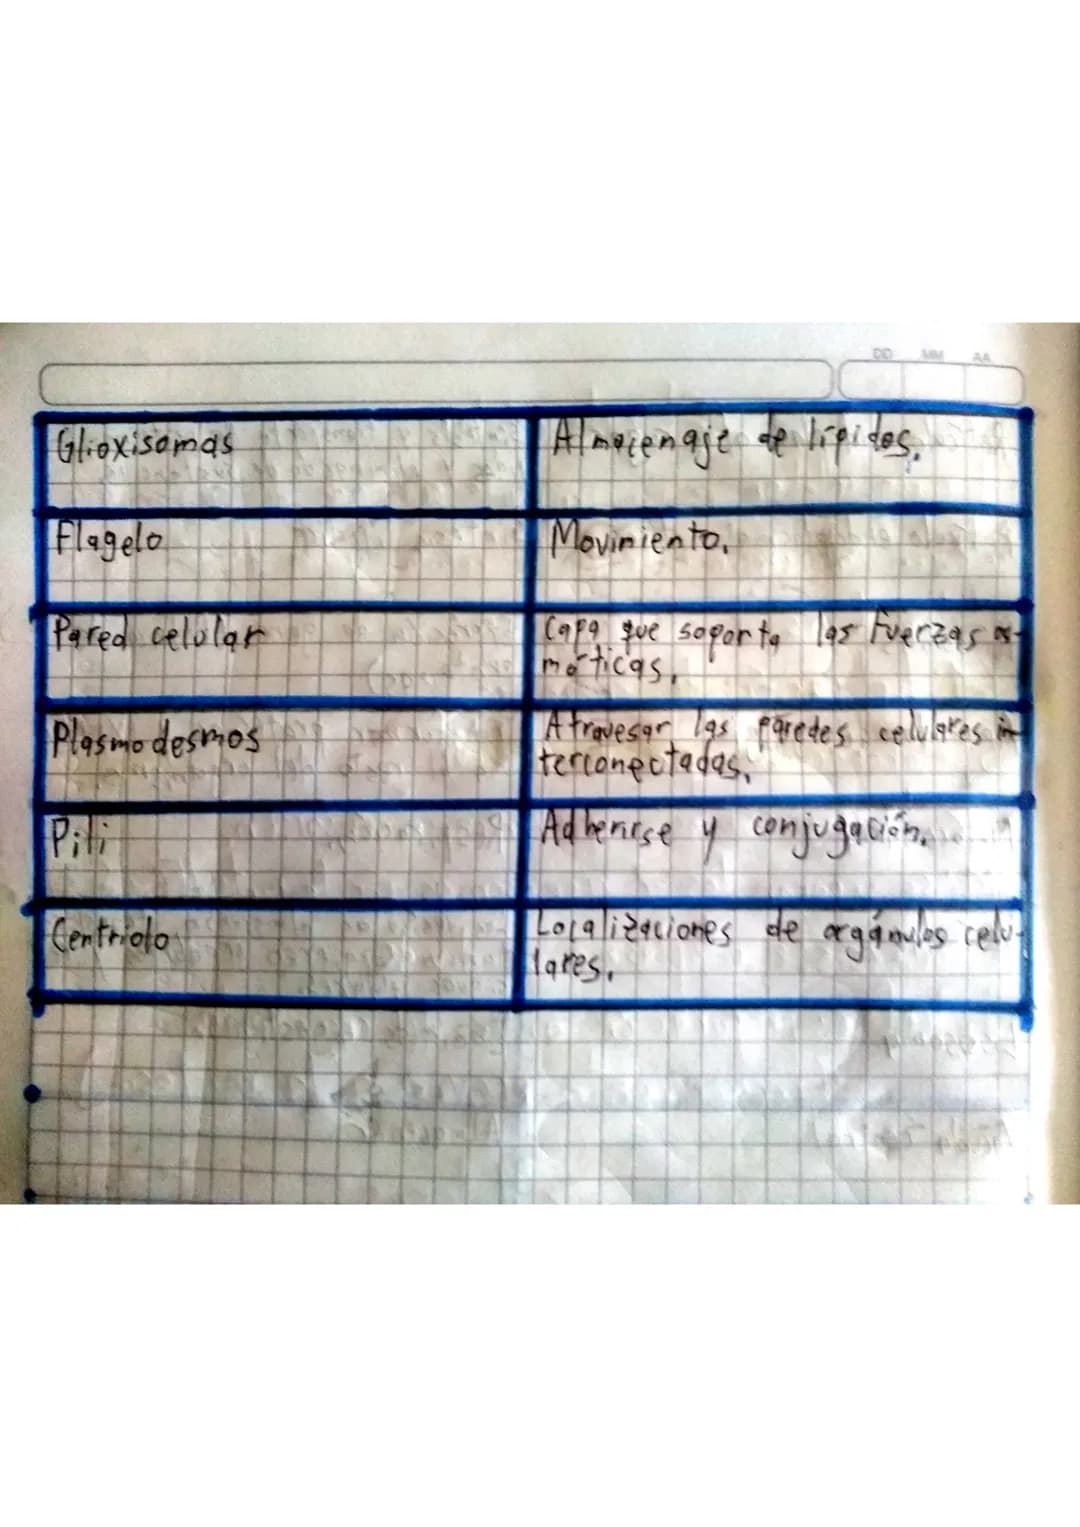 DD MM AA
Glioxisomas
Almacenaje de lípidos.
Flagelo
Movimiento.
Pared celular
Capa que soporta las fuerzas os-
móticas.
Plasmodesmos
Atravesar las paredes celulares in
terconectadas.
Pili
Adherirse y conjugación.
Centriolo
Localizaciones de orgánulos celu-
lares.